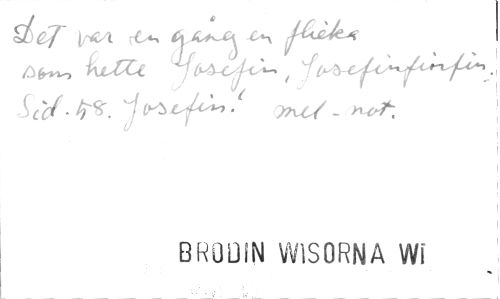 Det var en gång en flicka
som hette Josefin, Josefinfinfin.
Sid. 58. Josefin! mel-not.
BRODIN WISORNA WI